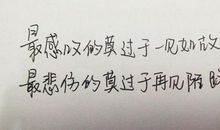 最感叹的莫过于一见如故
最悲伤的莫过于再见陌